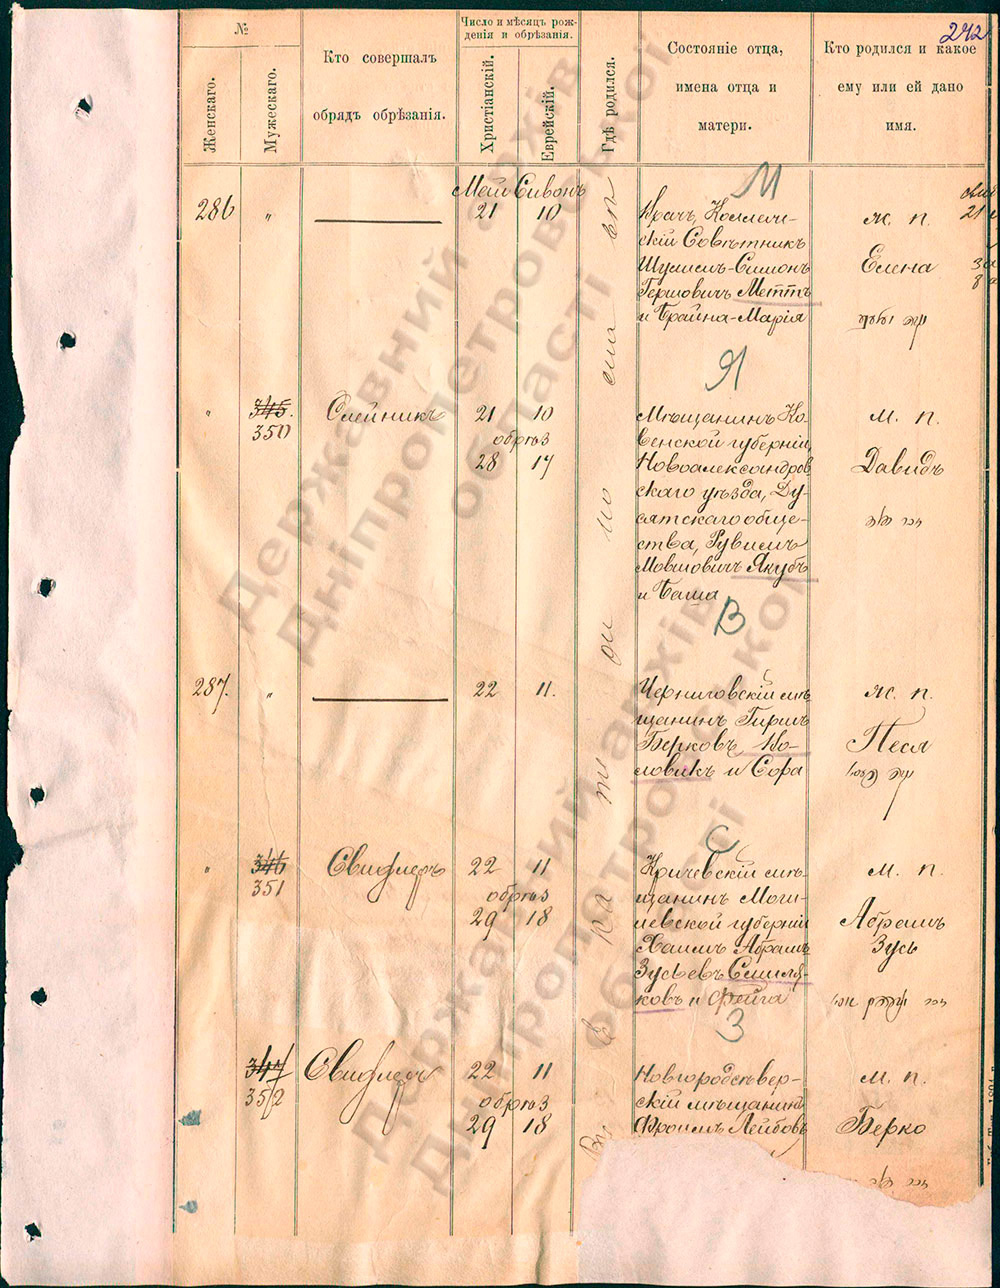 242
№
Женскаго.
Мужескаго.
Кто совершалъ
обрядъ обрѣзанія.
Число и мѣсяцъ рож-
денія и обрѣзанія.
Христіанскій.
Еврейскій.
Гдѣ родился.
Состояніе отца,
имена отца и
матери.
Кто родился и какое
ему или ей дано
имя.
Май Сивонъ
М
286 " 21 10
Врачъ, Коллеж-
скій Совѣтникъ
Шулимъ-Симонъ
Гершовичъ Меттъ
и Брайна-Марія
ж. п.
Елена
21
Я
" 345. 350 Олейникъ
21 10
обрѣз
28 17
Мѣщанинъ Ко-
венской губерніи,
Новоалександров-
скаго уѣзда, Ду-
сятскаго обще-
ства, Рувимъ
Мовшовичъ Якубъ
и Баша
м. п.
Давидъ
В
287. " 22 11.
Черниговскій мѣ-
щанинъ Гиршъ
Берковъ Во-
ловикъ и Софа
ж. п.
Песя
С
" 346 351 Свифлеръ
22 11
обрѣз
29 18
Кричевскій мѣ-
щанинъ Моги-
левской губерніи
Хаимъ Абрамъ
Зусьевъ Смиля-
ковъ и Фейга
м. п.
Абрамъ
Зусь
З
347 352 Свифлеръ
22 11
обрѣз
29 18
Новгородсѣвер-
скій мѣщанинъ
Фроимъ Лейбовъ
м. п.
Берко
Державний архів
Дніпропетровської
області
Державний архів
Дніпропетровської
області